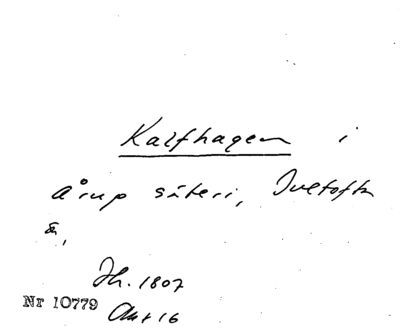 Kalfhagen i
Årup säteri, Ivetofta
sn,
Jh. 1807
Nr 10779
Akt 16